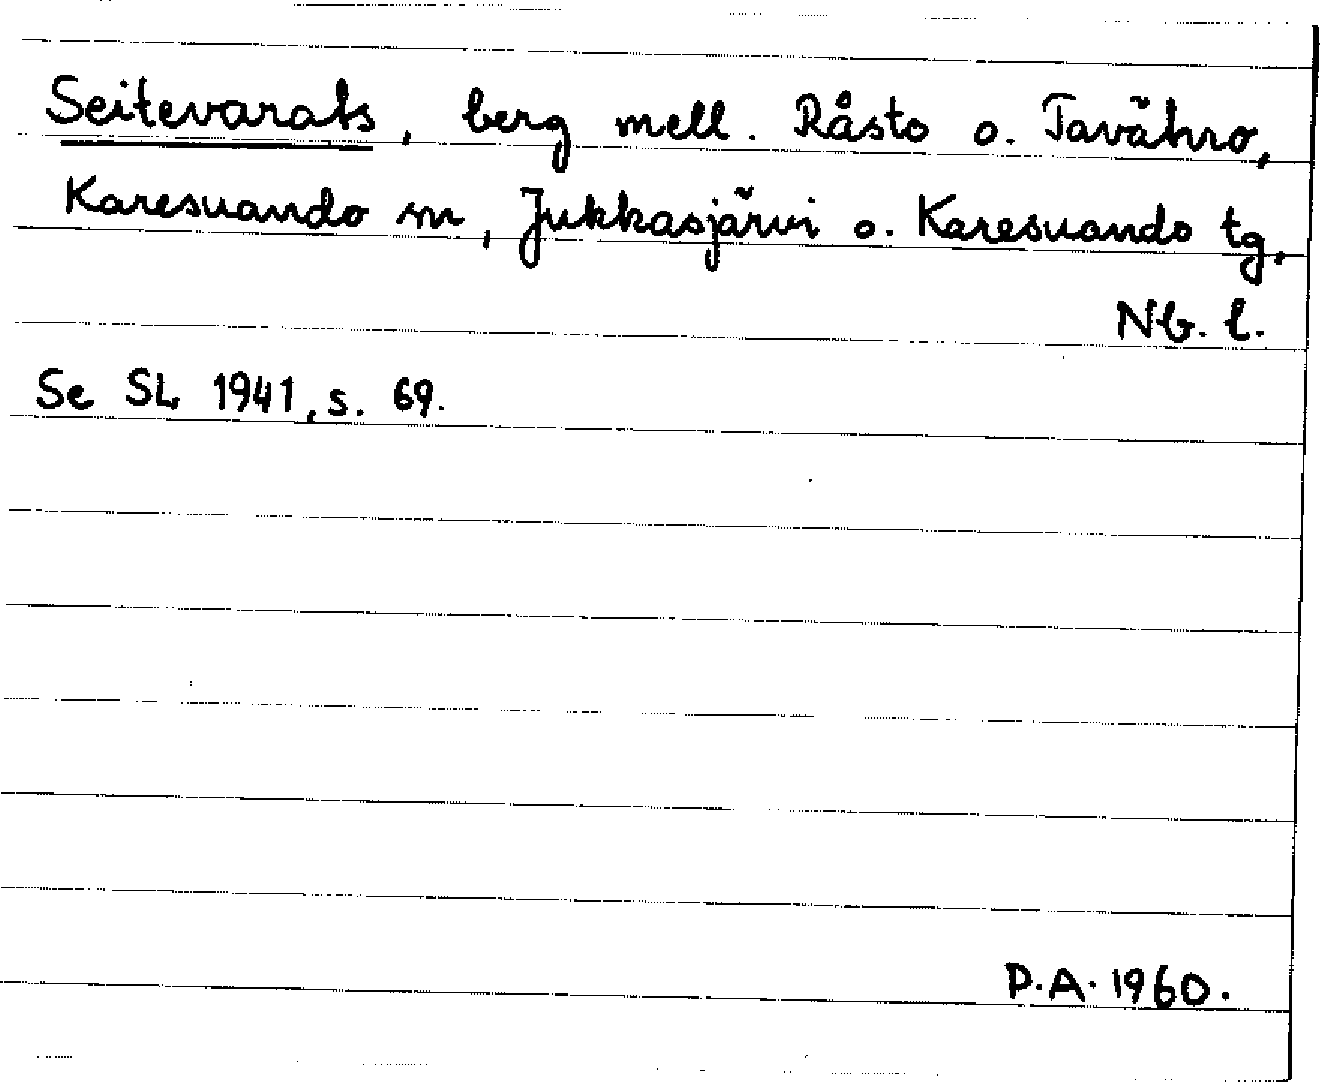 Seitevarats, berg mell. Råsto o. Tavähro,
Karesuando m, Jukkasjärvi o. Karesuando tg,
Nb. l.
Se SL 1941, s. 69.
P.A. 1960.